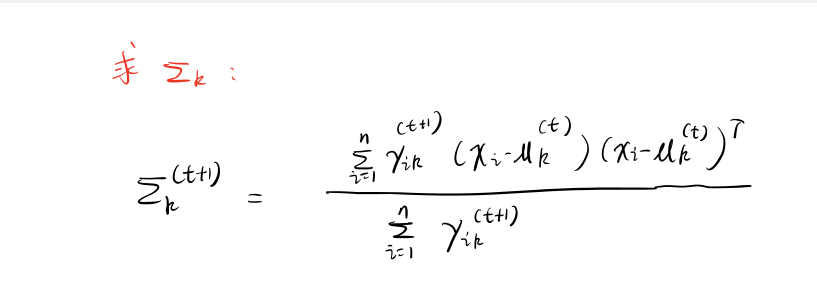 求 Σₖ :
Σₖ⁽ᵗ⁺¹⁾ = \frac{\sum_{i=1}^{n} γ_{ik}^{(t+1)} (x_i - μ_k^{(t)}) (x_i - μ_k^{(t)})^T}{\sum_{i=1}^{n} γ_{ik}^{(t+1)}}